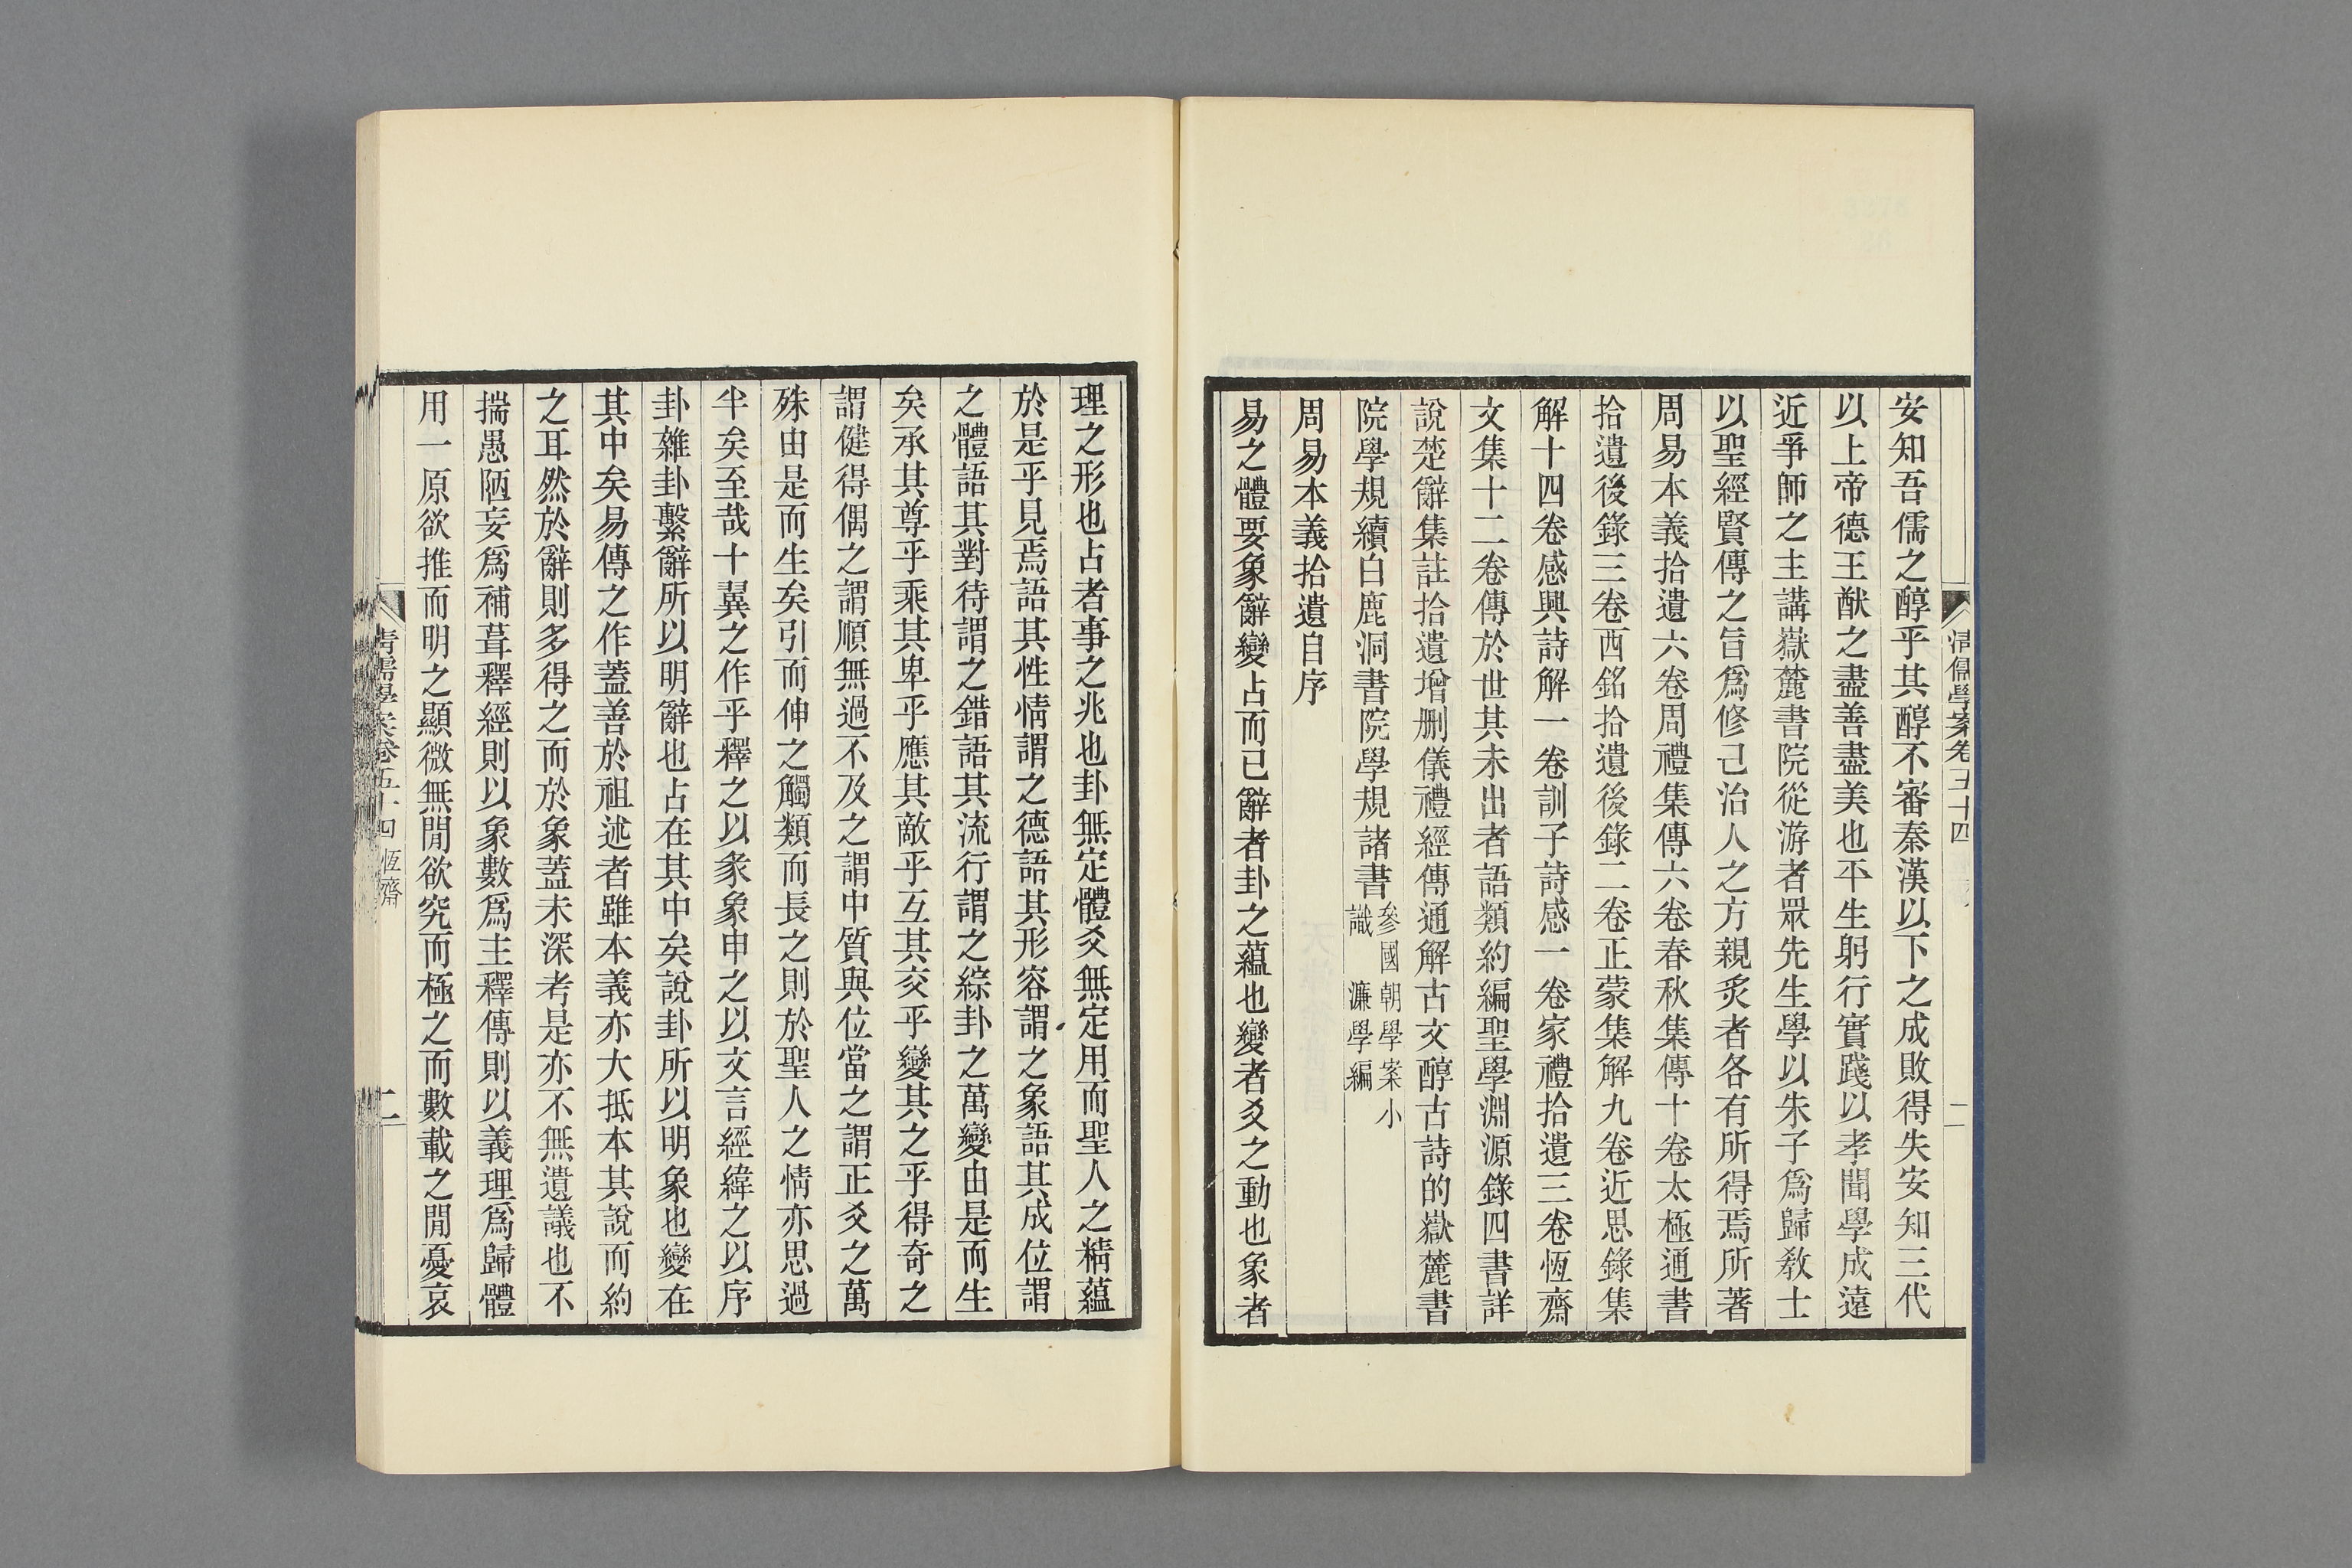 清儒學案卷五十四
一
安知吾儒之醇乎其醇不審秦漢以下之成敗得失安知三代
以上帝德王猷之盡善盡美也平生躬行實踐以孝聞學成遠
近爭師之主講嶽麓書院從游者眾先生學以朱子爲歸敎士
以聖經賢傳之旨爲修己治人之方親炙者各有所得焉所著
周易本義拾遺六卷周禮集傳六卷春秋集傳十卷太極通書
拾遺後錄三卷西銘拾遺後錄二卷正蒙集解九卷近思錄集
解十四卷感興詩解一卷訓子詩感一卷家禮拾遺三卷恆齋
文集十二卷傳於世其未出者語類約編聖學淵源錄四書詳
說楚辭集註拾遺增刪儀禮經傳通解古文醇古詩的嶽麓書
院學規續白鹿洞書院學規諸書參國朝學案小識 濂學編
周易本義拾遺自序
易之體要象辭變占而已辭者卦之蘊也變者爻之動也象者
理之形也占者事之兆也卦無定體爻無定用而聖人之精蘊
於是乎見焉語其性情謂之德語其形容謂之象語其成位謂
之體語其對待謂之錯語其流行謂之綜卦之萬變由是而生
矣承其尊乎乘其卑乎應其敵乎互其交乎變其之乎得奇之
謂健得偶之謂順無過不及之謂中質與位當之謂正爻之萬
殊由是而生矣引而伸之觸類而長之則於聖人之情亦思過
半矣至哉十翼之作乎釋之以彖象申之以文言經緯之以序
卦雜卦繫辭所以明辭也占在其中矣說卦所以明象也變在
其中矣易傳之作蓋善於祖述者雖本義亦大抵本其說而約
之耳然於辭則多得之而於象蓋未深考是亦不無遺議也不
揣愚陋妄爲補葺釋經則以象數爲主釋傳則以義理爲歸體
用一原欲推而明之顯微無閒欲究而極之而數載之閒憂哀
清儒學案卷五十四 恆齋
二